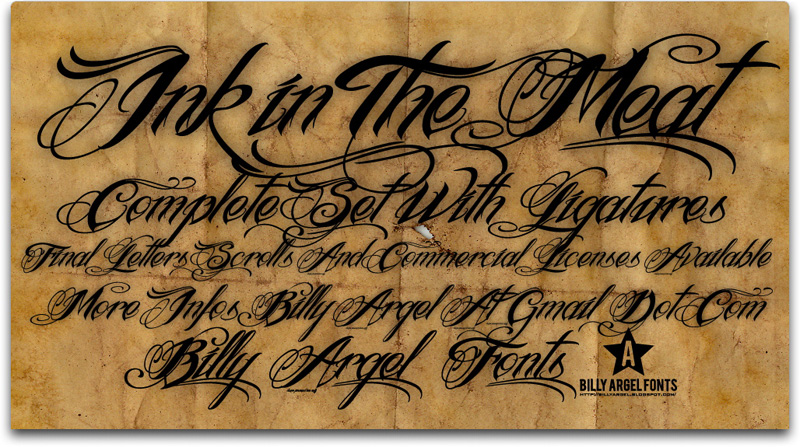 Ink in The Meat
Complete Set With Ligatures
Final Letters Scrolls And Commercial Licenses Available
More Infos Billy Argel At Gmail Dot Com
Billy Argel Fonts
A
BILLY ARGEL FONTS
HTTP://BILLYARGEL.BLOGSPOT.COM/